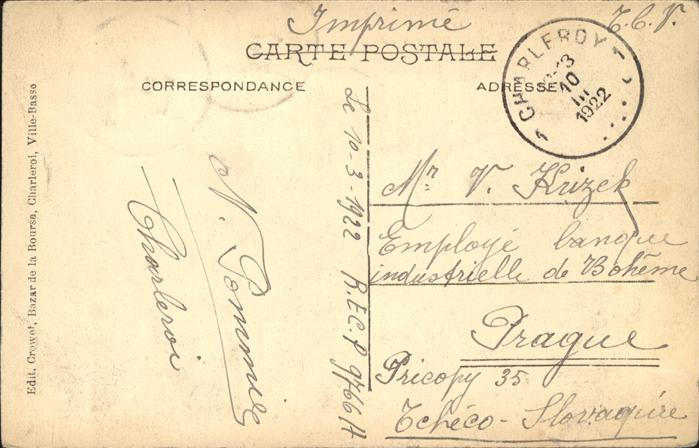 Imprimé
T.C.V.
CARTE POSTALE
CORRESPONDANCE
ADRESSE
1 CHARLEROY 1
10
III
1922
Le 10-3-1922 R.E.C.P 9766 A
Charleroi
Mr V. Krizek
Employé banque
industrielle de Bohême
Prague
Pricopy 35
Tchéco-Slovaquie
Edit. Crowet, Bazar de la Bourse, Charleroi, Ville-Basse